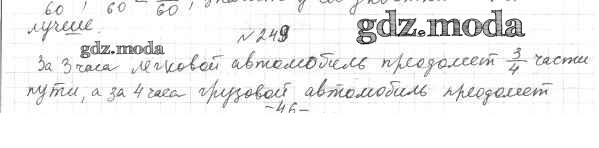 60 ; 60 60
лучше.
№249
gdz.moda
gdz.moda
За 3 часа легковой автомобиль преодолеет 3/4 части
пути, а за 4 часа грузовой автомобиль преодолеет
-46-